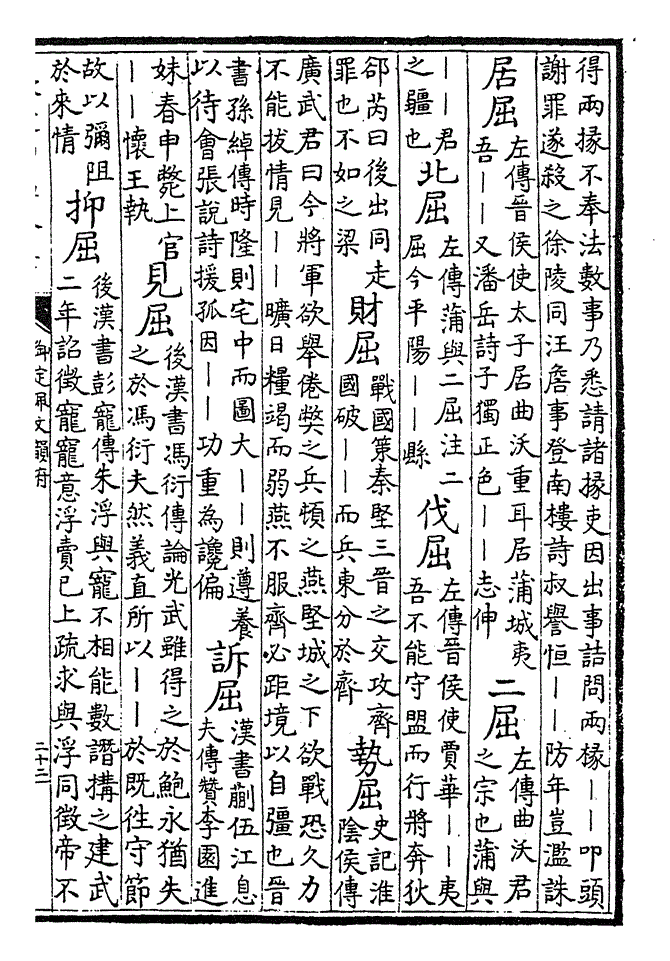 得兩掾不奉法數事乃悉請諸掾吏因出事詰問兩掾——叩頭
謝罪遂殺之徐陵同汪詹事登南樓詩叔譽恒——防年豈濫誅
居屈
左傳晉侯使太子居曲沃重耳居蒲城夷
吾——又潘岳詩子獨正色——志伸
二屈
左傳曲沃君
之宗也蒲與
——君
之疆也
北屈
左傳蒲與二屈注二
屈今平陽——縣
伐屈
左傳晉侯使賈華——夷
吾不能守盟而行將奔狄
郤芮曰後出同走
罪也不如之梁
財屈
戰國策秦堅三晉之交攻齊
國破——而兵東分於齊
勢屈
史記淮
陰侯傳
廣武君曰今將軍欲舉倦獘之兵頓之燕堅城之下欲戰恐久力
不能拔情見——曠日糧竭而弱燕不服齊必距境以自彊也晉
書孫綽傳時隆則宅中而圖大——則遵養
以待會張說詩援孤因——功重為讒偏
訴屈
漢書蒯伍江息
夫傳贊李園進
妹春申斃上官
——懷王執
見屈
後漢書馮衍傳論光武雖得之於鮑永猶失
之於馮衍夫然義直所以——於既徃守節
故以彌阻
於來情
抑屈
後漢書彭寵傳朱浮與寵不相能數譖搆之建武
二年詔徵寵寵意浮賣已上疏求與浮同徵帝不
御定佩文韻府
二十二